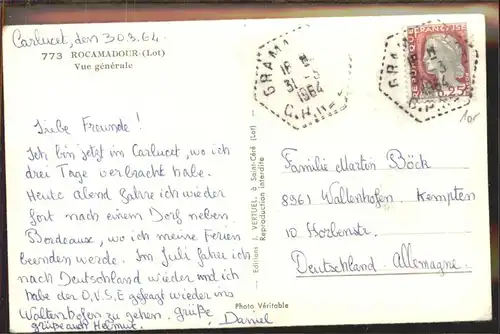 Carlucet, den 30.3.64.
773 ROCAMADOUR (Lot)
Vue générale
Liebe Freunde!
Ich bin jetzt im Carlucet, wo ich
drei Tage verbracht habe.
Heute abend fahre ich wieder
fort nach einem Dorf neben
Bordeause, wo ich meine Ferien
beenden werde. Im Juli fahre ich
nach Deutschland wieder und ich
habe der O.V.S.E gefragt wieder ins
Waltenhofen zu gehen. grüße
grüße auch Helmut. Daniel
Editions J. VERTUEL, à Saint-Céré (Lot)
Reproduction interdite
Photo Véritable
18 H
31-3
1964
REPUBLIQUE FRANÇAISE
0,25
1964
10r
Familie Martin Böck
8961 Waltenhofen Kempten
10
Deutschland. Allemagne.